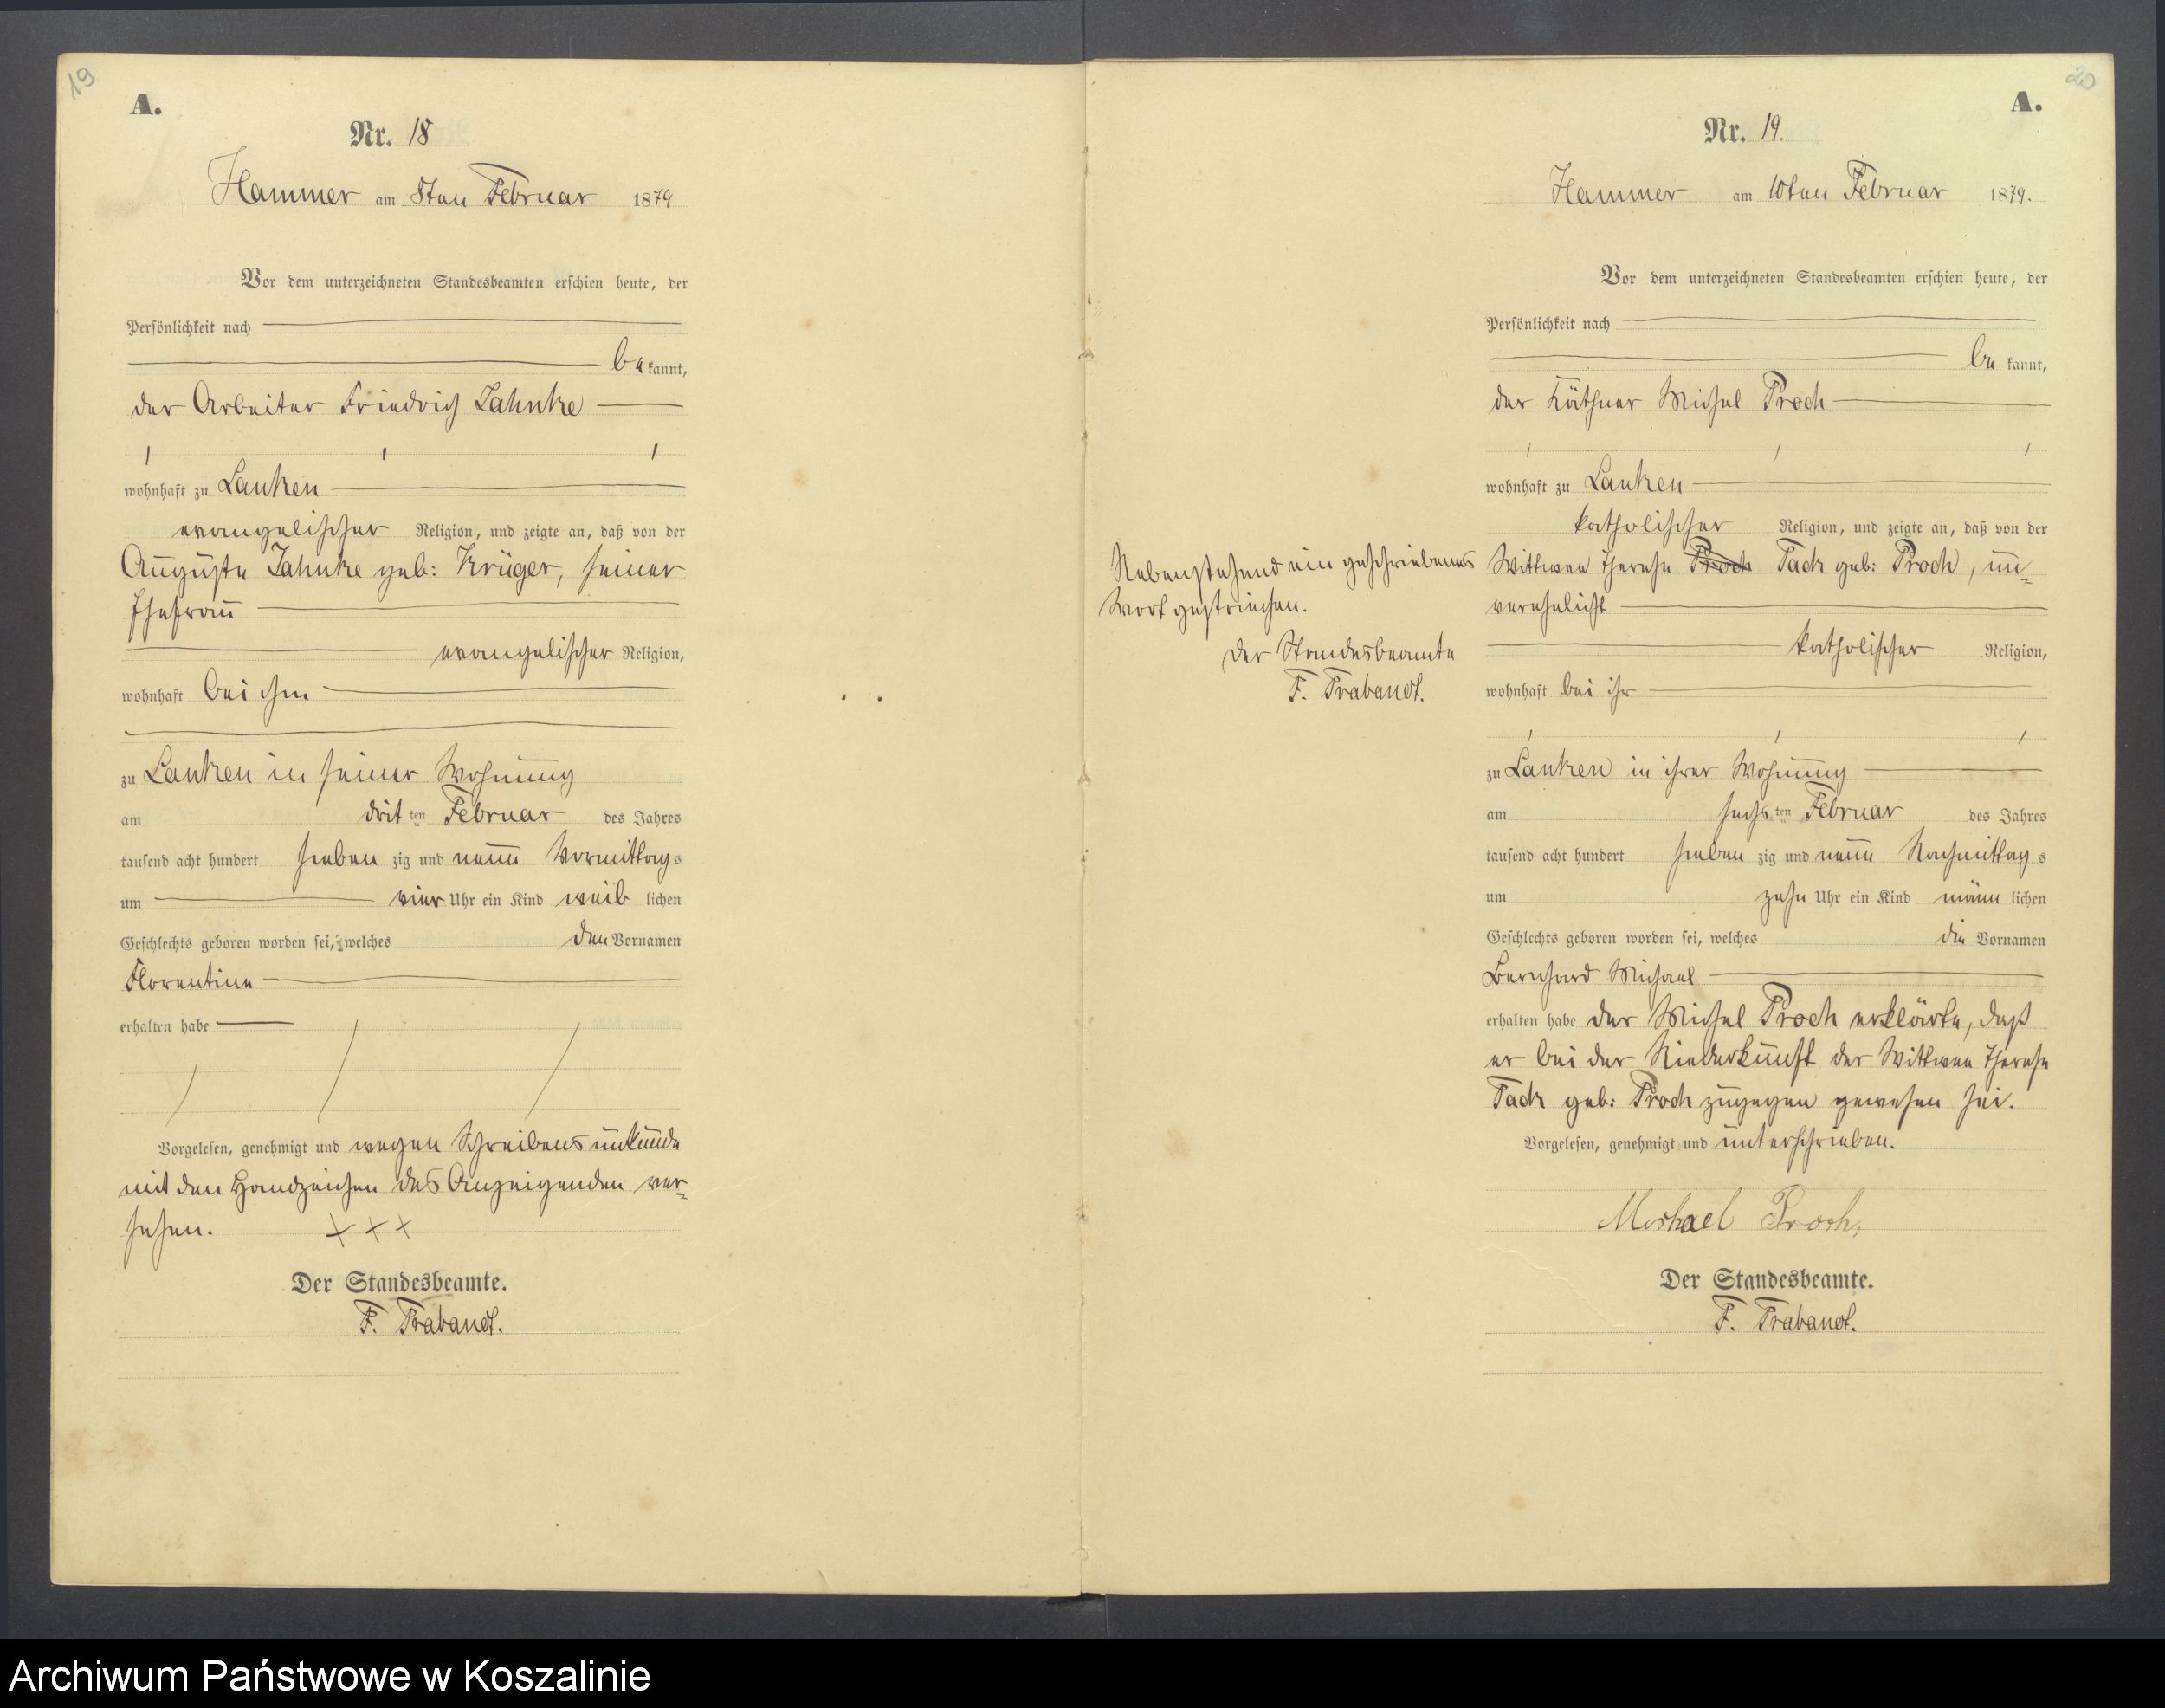 19
A.
Nr. 18
Hammer am 8ten Februar 1879
Vor dem unterzeichneten Standesbeamten erschien heute, der
Persönlichkeit nach
be kannt,
der Arbeiter Friedrich Jahnke
wohnhaft zu Lanken
evangelischer Religion, und zeigte an, daß von der
Auguste Jahnke geb: Krüger, seiner
Ehefrau
evangelischer Religion,
wohnhaft bei ihm
zu Lanken in seiner Wohnung
am drit ten Februar des Jahres
tausend acht hundert sieben zig und neun Vormittags
um vier Uhr ein Kind weib lichen
Geschlechts geboren worden sei, welches den Vornamen
Florentine
erhalten habe
Vorgelesen, genehmigt und wegen Schreibensunkunde
mit den Handzeichen des Anzeigenden ver-
sehen. X X X
Der Standesbeamte.
F. Trabandt.
20
A.
Nr. 19.
Hammer am 10ten Februar 1879.
Vor dem unterzeichneten Standesbeamten erschien heute, der
Persönlichkeit nach
be kannt,
der Käthner Michel Proch
wohnhaft zu Lanken
katholischer Religion, und zeigte an, daß von der
Wittwee Therese Proch Tack geb: Proch, un-
verehelicht
katholischer Religion,
wohnhaft bei ihr
zu Lanken in ihrer Wohnung
am sechs ten Februar des Jahres
tausend acht hundert sieben zig und neun Nachmittag s
um zehn Uhr ein Kind männ lichen
Geschlechts geboren worden sei, welches die Vornamen
Bernhard Michael
erhalten habe der Michel Proch erklärte, daß
er bei der Niederkunft der Wittwee Therese
Tack geb: Proch zugegen gewesen sei.
Vorgelesen, genehmigt und unterschrieben.
Michael Proch,
Der Standesbeamte.
F. Trabandt.
Nebenstehend ein geschriebenes
Wort gestrichen.
Der Standesbeamte
F. Trabandt.
Archiwum Państwowe w Koszalinie